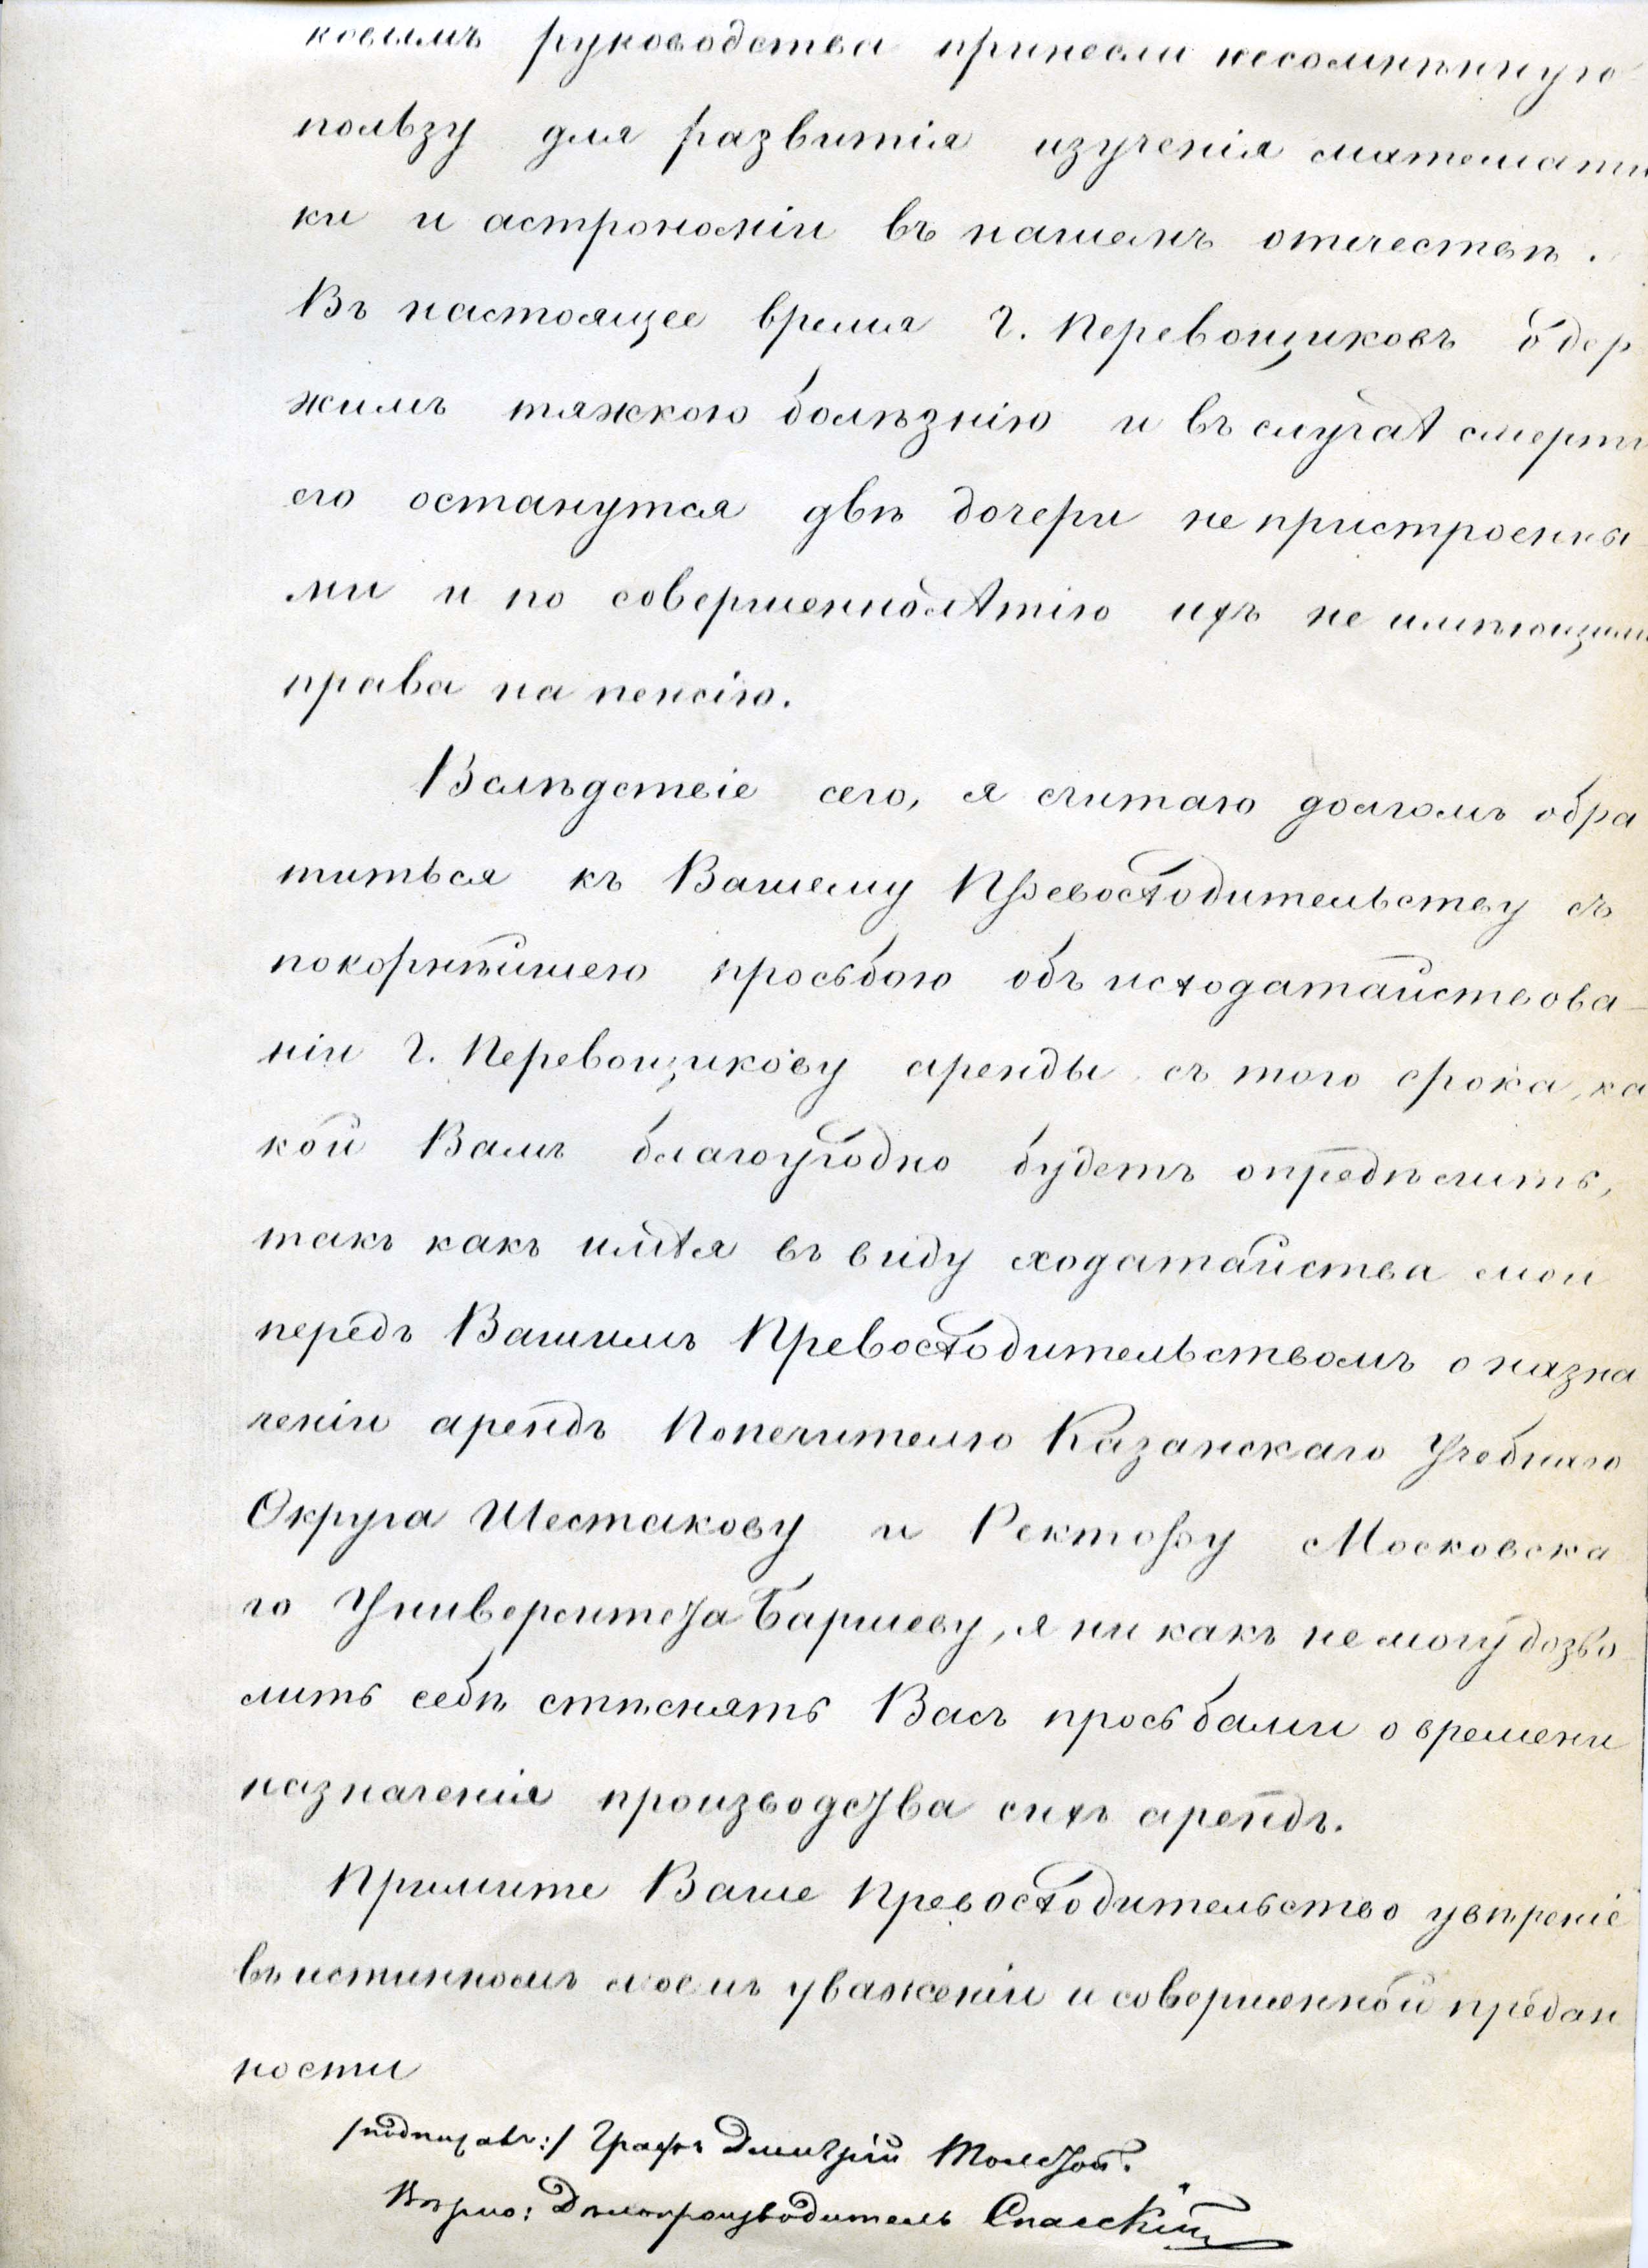 ковымъ руководства принесли несомнѣнную
пользу для развитія изученія математи
ки и астрономіи въ нашемъ отечествѣ.
Въ настоящее время Г. Перевощиковъ одер
жимъ тяжкою болѣзнію и въ случаѣ смерти
его останутся двѣ дочери не пристроенны
ми и по совершеннолѣтію ихъ не имѣющими
права на пенсію.
Вслѣдствіе сего, я считаю долгомъ обра
титься къ Вашему Превосходительству съ
покорнѣйшею просьбою объ исходатайствова-
ніи Г. Перевощикову аренды съ того срока, ка
кой Вамъ благоугодно будетъ опредѣлить,
такъ какъ имѣя въ виду ходатайства мои
передъ Вашимъ Превосходительствомъ о назна
ченіи арендъ Попечителю Казанскаго Учебнаго
Округа Шестакову и Ректору Московска
го Университета Баршеву, я ни какъ не могу дозво
лить себѣ стѣснять Васъ просьбами о времени
назначенія производства сихъ арендъ.
Примите Ваше Превосходительство увѣреніе
въ истинномъ моемъ уваженіи и совершенной предан
ности
/подписалъ:/ Графъ Дмитрій Толстой.
Вѣрно: Дѣлопроизводитель Спасскій